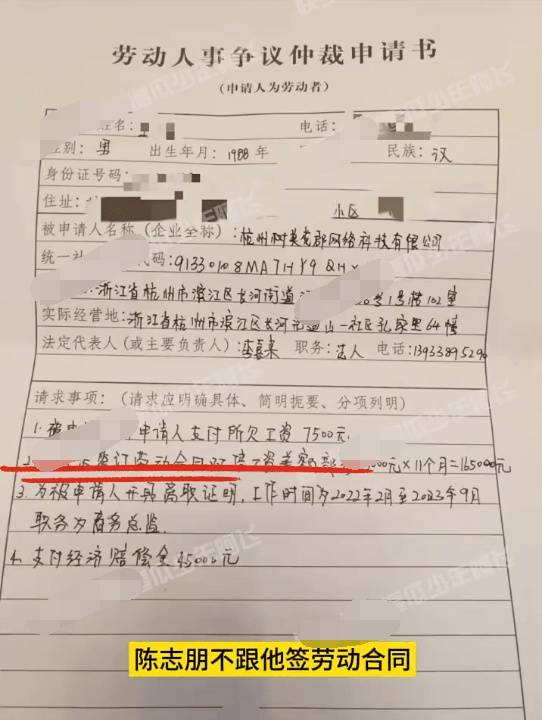 劳动人事争议仲裁申请书
（申请人为劳动者）
姓名：
电话：
性别：男 出生年月：1988年 民族：汉
身份证号码：
住址： 小区
被申请人名称（企业全称）：杭州树英龙郡网络科技有限公司
统一社 代码：91330108MA7HY9QHX
浙江省杭州市滨江区长河街道 1号楼102室
实际经营地：浙江省杭州市滨江区长河街道山一社区孔家里64幢
法定代表人（或主要负责人） 职务：法人 电话：1393389529
请求事项：（请求应明确具体、简明扼要、分项列明）
1. 被申 申请人支付所欠工资 7500元
2. 签订劳动合同双倍工资差额部 000元×11个月=165000元
3. 为被申请人开具离职证明，工作时间为2022年2月至2023年9月
职务为商务总监
4. 支付经济赔偿金45000元
陈志朋不跟他签劳动合同